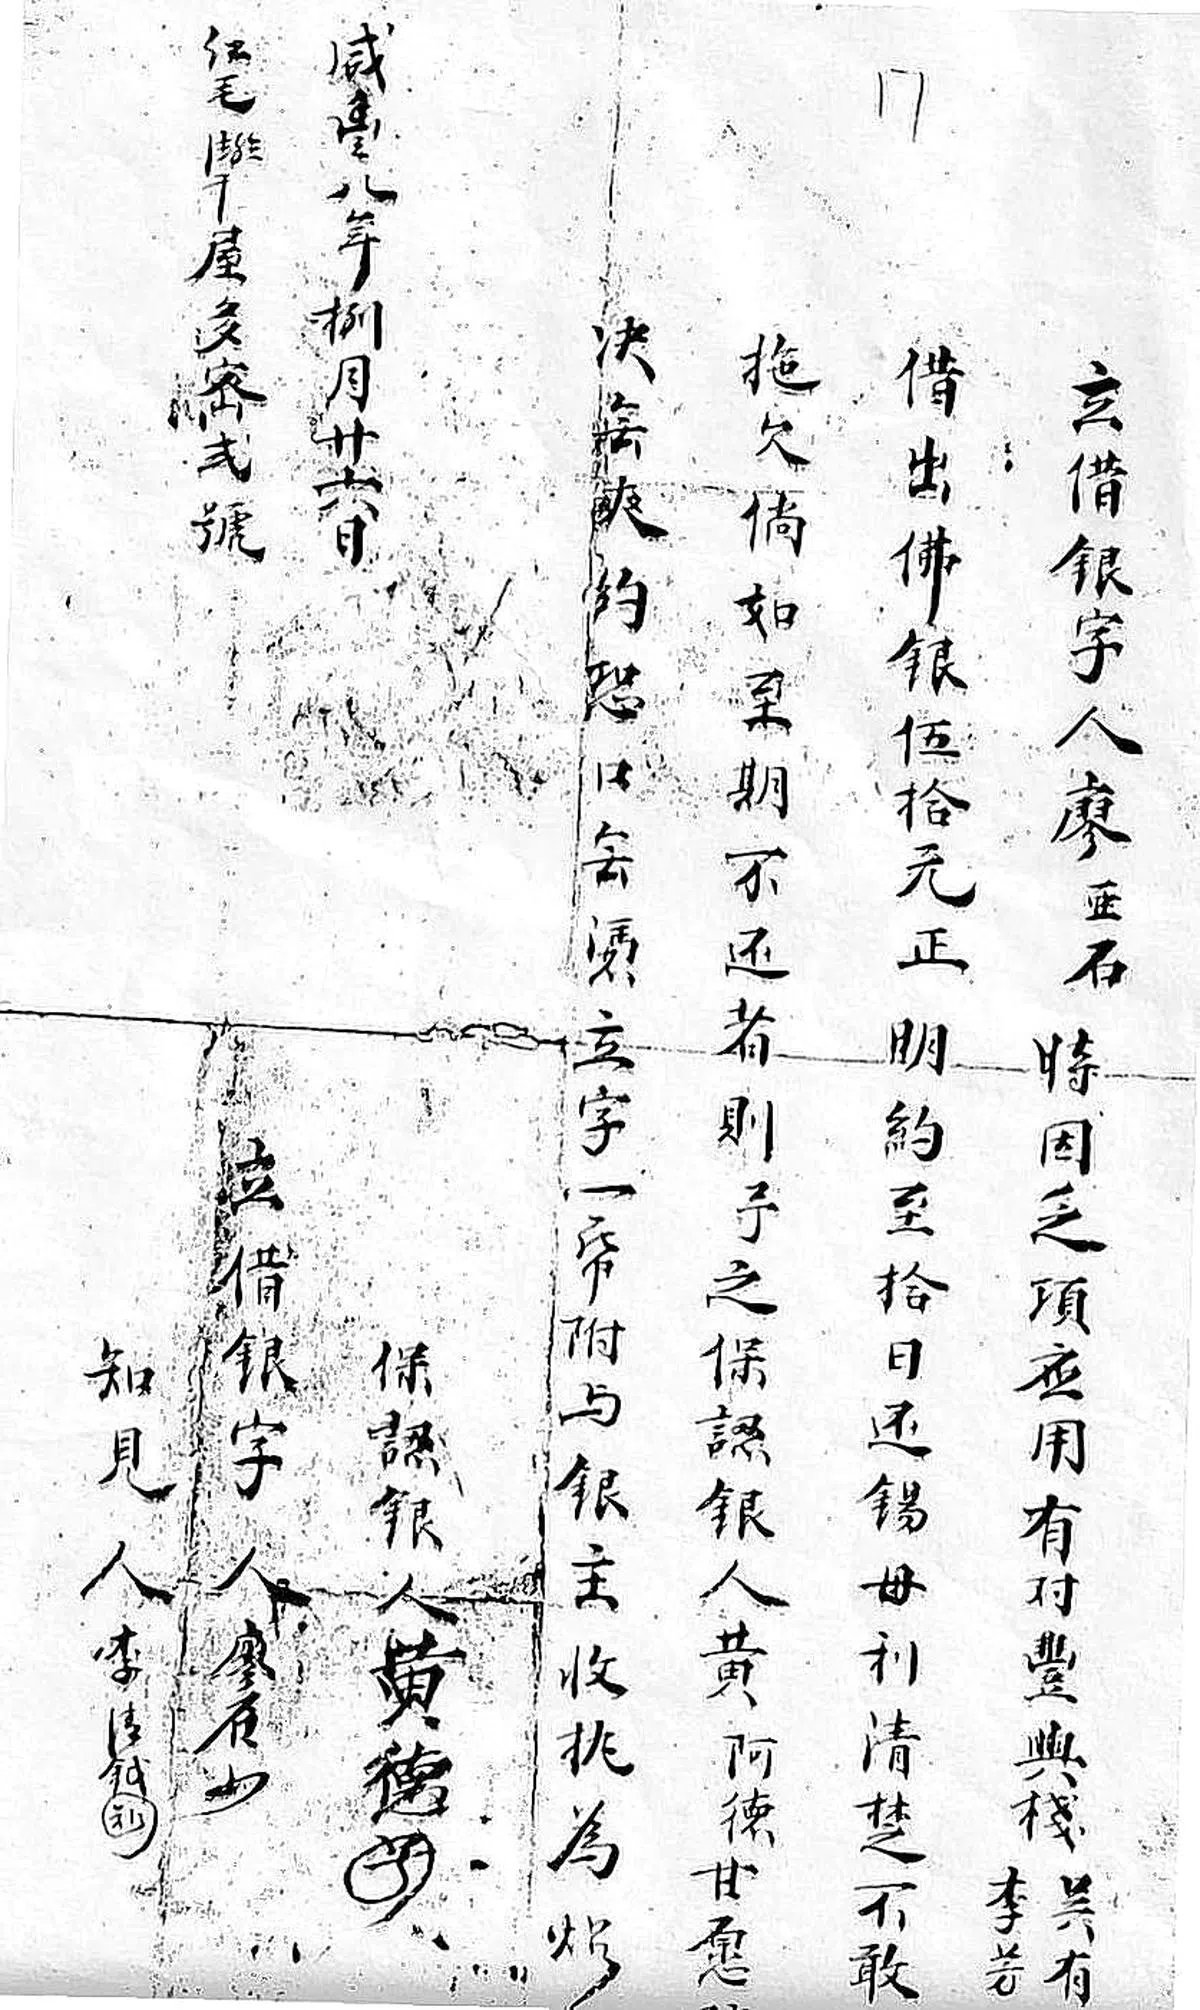 17
立借銀字人廖亜石時因乏項应用有对豐興棧吴有
李芳
借出佛銀伍拾元正明約至拾日还錫母利清楚不敢
拖欠倘如至期不还者則予之保認銀人黄阿德甘愿
决無爽約恐口無凴立字一帋附与銀主收执為炤
咸豐八年捌月廿六日
屋多密弍號
保認銀人黄德
立借銀字人廖石
知見人李清